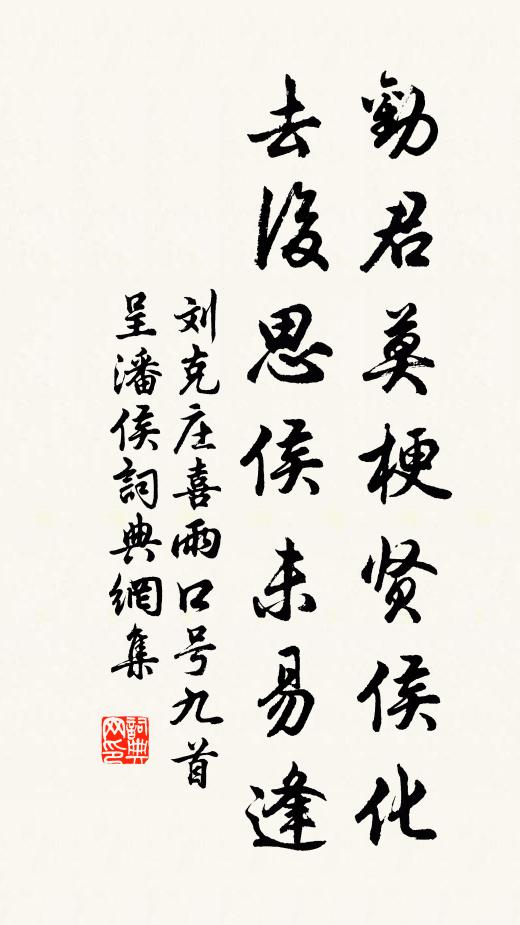 勸君莫梗贤侯化
去後思侯未易逢
刘克庄喜雨口号九首
呈潘侯詞典網集
詞典网印